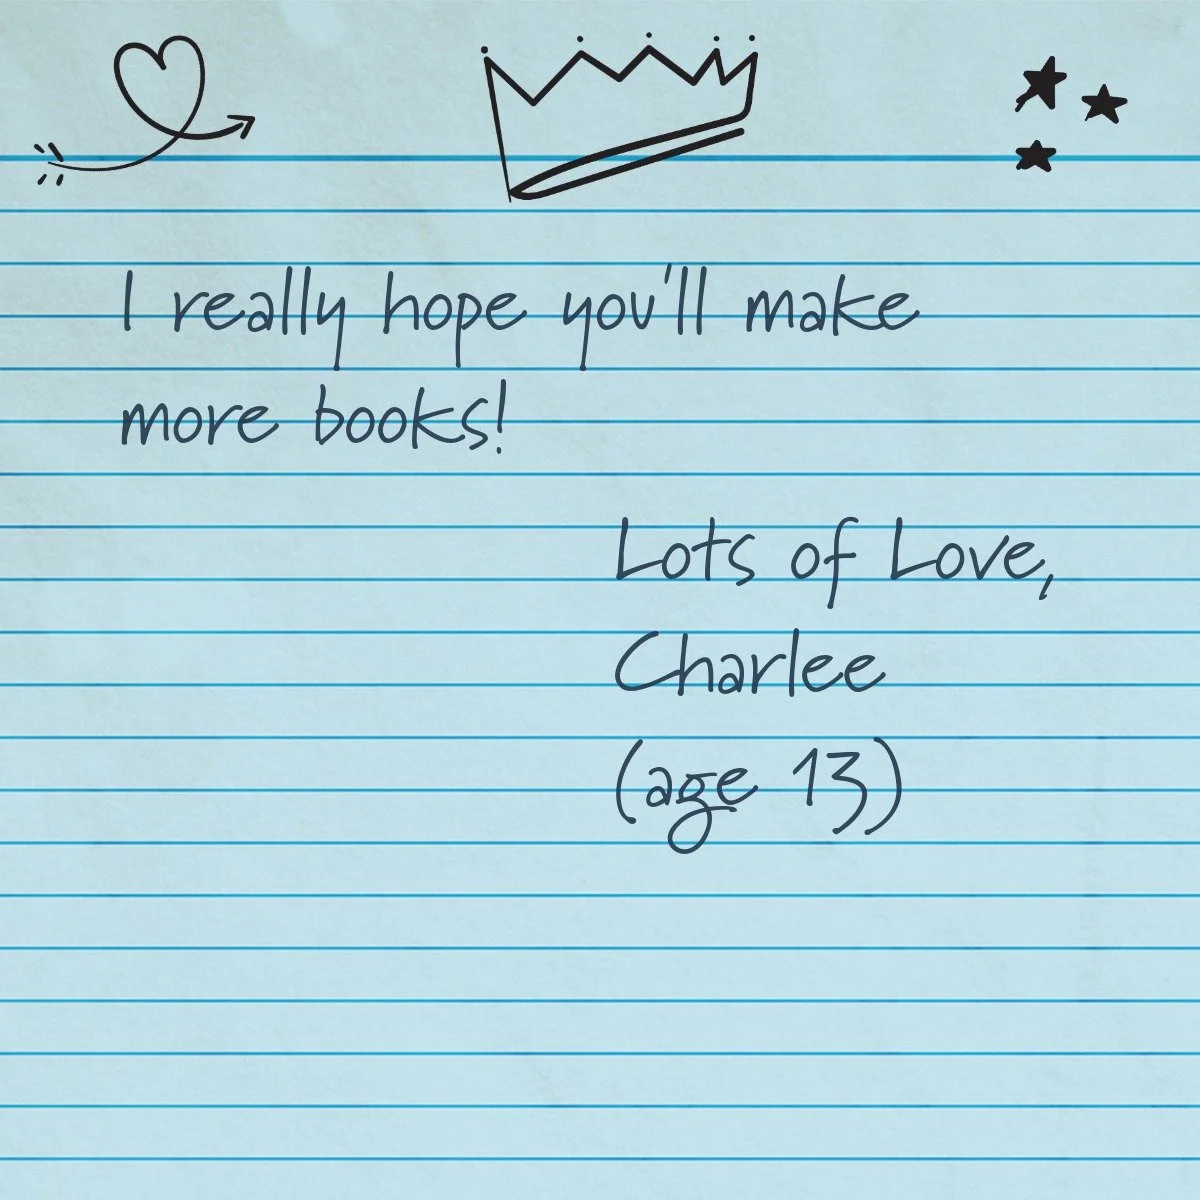 I really hope you'll make
more books!
Lots of Love,
Charlee
(age 13)